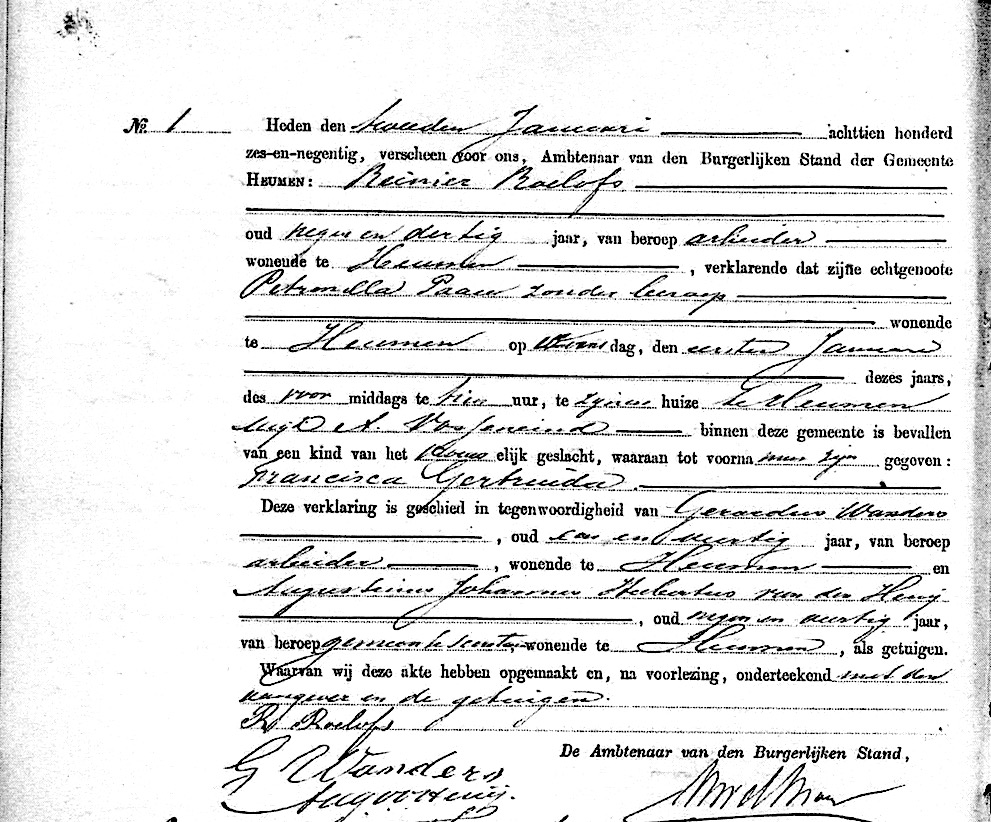 No. 1 Heden den tweeden Januari achttien honderd
zes-en-negentig, verscheen voor ons, Ambtenaar van den Burgerlijken Stand der Gemeente
HEUMEN: Reinier Roelofs
oud negen en dertig jaar, van beroep arbeider
wonende te Heumen, verklarende dat zijne echtgenoote
Petronilla Paau zonder beroep
wonende
te Heumen op Woensdag, den eersten Januari
dezes jaars,
des voor middags te tien uur, te zijnen huize te Heumen
wijk A. binnen deze gemeente is bevallen
van een kind van het vrouwelijk geslacht, waaraan tot voorna men zijn gegeven:
Francisca Gertruida.
Deze verklaring is geschied in tegenwoordigheid van Gerardus Wanders
, oud een en veertig jaar, van beroep
arbeider, wonende te Heumen en
Augustinus Johannes Hubertus van der
, oud negen en veertig jaar,
van beroep wonende te Heumen, als getuigen.
Waarvan wij deze akte hebben opgemaakt en, na voorlezing, onderteekend met den
aangever en de getuigen.
R. Roelofs
De Ambtenaar van den Burgerlijken Stand,
G Wanders